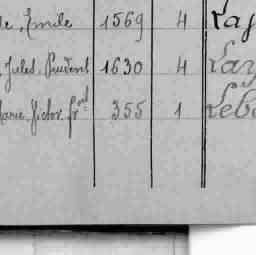 de, Emile 1569 4 Laj
, Jules, Prudent 1630 4 Lay
Marie, Victor, fr^çois 355 1 Lebe